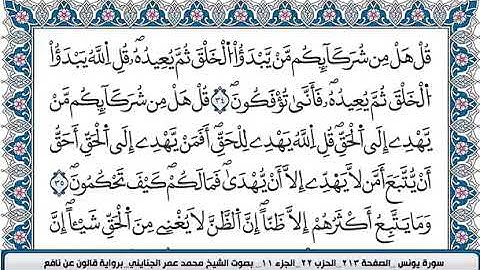 قُلْ هَلْ مِن شُرَكَآئِكُم مَّنْ يَّبْدَؤُاْ اُ۬لْخَلْقَ ثُمَّ يُعِيدُهُۥۖ قُلِ اِ۬للَّهُ يَبْدَؤُاْ
اُ۬لْخَلْقَ ثُمَّ يُعِيدُهُۥۖ فَأَنّ۪ىٰ تُؤْفَكُونَۖ ٣٤ قُلْ هَلْ مِن شُرَكَآئِكُم مَّنْ
يَّهْدِےٓ إِلَى اَ۬لْحَقِّۖ قُلِ اِ۬للَّهُ يَهْدِے لِلْحَقِّۖ أَفَمَنْ يَّهْدِےٓ إِلَى اَ۬لْحَقِّ أَحَقُّ
أَنْ يُّتَّبَعَ أَمَّن لَّا يَهَدِّےٓ إِلَّآ أَنْ يُّهْد۪ىٰۖ فَمَا لَكُمْ كَيْفَ تَحْكُمُونَۖ ٣٥
وَمَا يَتَّبِعُ أَكْثَرُهُمُۥٓ إِلَّا ظَنّاًۖ اِنَّ اَ۬لظَّنَّ لَا يُغْنِے مِنَ اَ۬لْحَقِّ شَيْـٔاًۖ اِنَّ
سورة يونس _الصفحة ٢١٣_ الحزب ٢٢_ الجزء ١١_ بصوت الشيخ محمد عمر الجنايني_ برواية قالون عن نافع